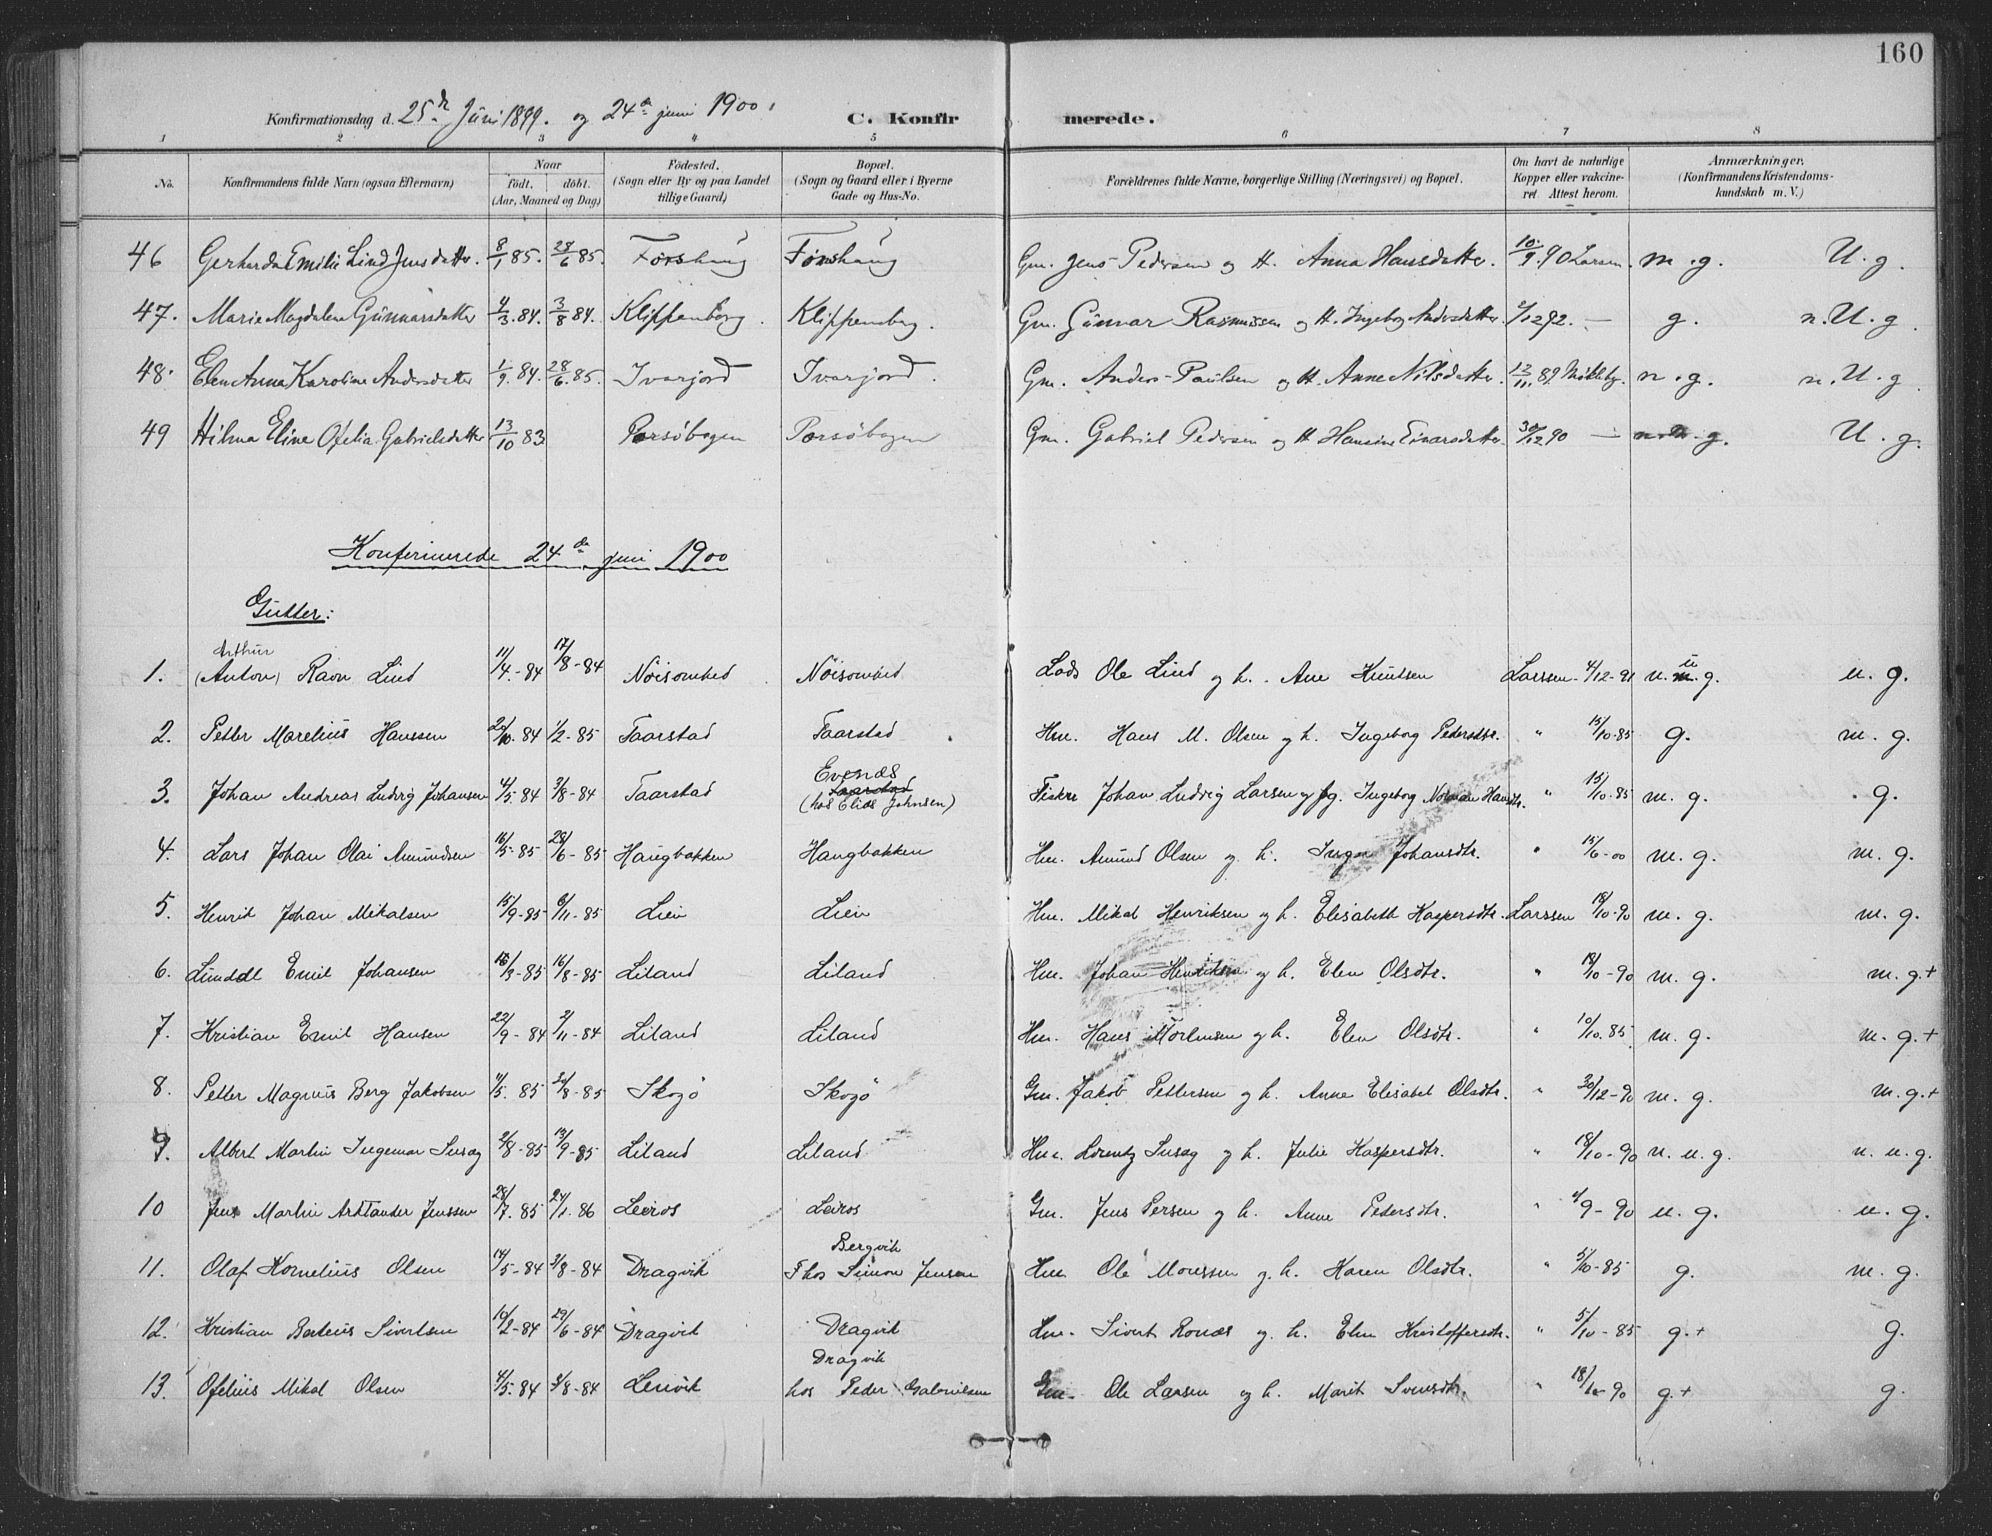 160
Konfirmationsdag d. 25de Juni 1899. og 24de juni 1900. C. Konfirmerede.
1 2 3 4 5 6 7 8
No. Konfirmandens fulde Navn (ogsaa Efternavn) Naar födt. döbt. (Aar, Maaned og Dag) Födested. (Sogn eller By og paa Landet tillige Gaard) Bopæl. (Sogn og Gaard eller i Byerne Gade og Hus-No. Forældrenes fulde Navne, borgerlige Stilling (Næringsvei) og Bopæl. Om havt de naturlige Kopper eller vaccineret. Attest herom. Anmærkninger. (Konfirmandens Kristendomskundskab m. V.)
46 Gerharda Emilie Lind Jensdatter. 8/1 85. 28/6 85. Forshaug Forshaug Gm. Jens Pedersen og H. Anna Hansdatter. 10/9 90 Larsen. m. g. U. g.
47. Marie Magdalene Gunnarsdatter 4/3. 84. 3/8 84. Klippenborg. Klippenborg. Gm. Gunnar Rasmussen og H. Ingeborg Andersdatter. /12 92. — g. n. U. g.
48. Elen Anna Karoline Andersdatter 1/9. 84. 28/6. 85. Ivarjord Ivarjord. Gm. Anders Paulsen og H. Anne Nilsdatter. 12/11. 89. n. g. n. U. g
49 Hilma Eline Ofelia Gabrielsdatter 13/10 83 Porsöbogen Porsöbogen Gm. Gabriel Pedersen og H. Hansine Einarsdatter 30/12 90 — g. U. g.
Konfirmerede 24de juni 1900
Gutter:
Arthur
1. (Anton) Ravn Lind 11/4.-84 17/8-84 Nöisomhed Nöisomhed Lods Ole Lind og h. Ane Knutsen Larssen- 4/12-91 u. g. u. g.
2. Petter Marelius Hanssen 22/10. 84 1/2-85 Taarstad Taarstad Hm. Hans M. Olsen og h. Ingeborg Pedersdtr. " 15/10-85 g. m. g.
Evenæs
3. Johan Andreas Ludvig Johansen 4/5. 84 3/8-84 Taarstad Taarstad Fisker Johan Ludvig Larsen og fg. Ingeborg Hansdtr. " 15/10-85 m. g. g.
(hos Elias Johnsen)
4. Lars Johan Olai Amundsen 16/5-85 28/6-85 Haugbakken Haugbakken Hm. Amund Olsen og h. Johansdtr. " 15/6-00 m. g. m. g.
5. Henrik Johan Mikalsen 15/9-85 6/11-85 Lien Lien Hm. Mikal Henriksen og h. Elisabeth Kaspersdtr. Larssen 18/10-90 m. g. m. g.
6. Emil Johansen 16/3-85 16/8-85 Liland Liland Hm. Johan Henriksen og h. Elen Olsdtr. " 18/10-90 m. g. m. g.+
7. Kristian Emil Hansen 22/9-84 2/11-84 Liland Liland Hm. Hans Mortensen og h. Elen Olsdtr. " 10/10. 85 m. g. m. g.+
8. Petter Magnus Berg Jakobsen 11/5. 85 2/8-85 Skogö Skogö Gm. Jakob Pettersen og h. Anne Elisabet Olsdtr. " 30/12-90 m. g. m. g.+
9. Albert Martin Ingemar Susag 2/8-85 13/9-85 Liland Liland Hm. Lorentz Susag og h. Julie Kaspersdtr. " 18/10-90 n. u. g. n. u. g.
10 Jens Martin Jenssen 28/7. 85 24/1. 86 Leiros Leiros Gm. Jens Persen og h. Anne Pedersdtr. " 4/9-90 u. g. u. g.
Bergvik
11. Olaf Kornelius Olsen 14/5-84 3/8-84 Dragvik hos Simon Jensen Hm. Ole Monssen og h. Karen Olsdtr. " 5/10-85 g. m. g.
12. Kristian Sivertsen 10/2-84 29/6-84 Dragvik Dragvik Hm. Sivert Ronæs og h. Elen Kristoffersdtr. " 5/10-85 g.+ g.
Dragvik
13. Ofelius Mikal Olsen 4/5. 84 3/8-84 Lenvik hos Peder Gabrielsen Gm. Ole Larsen og h. Marit Svensdtr. " 18/10-90 g.+ g.